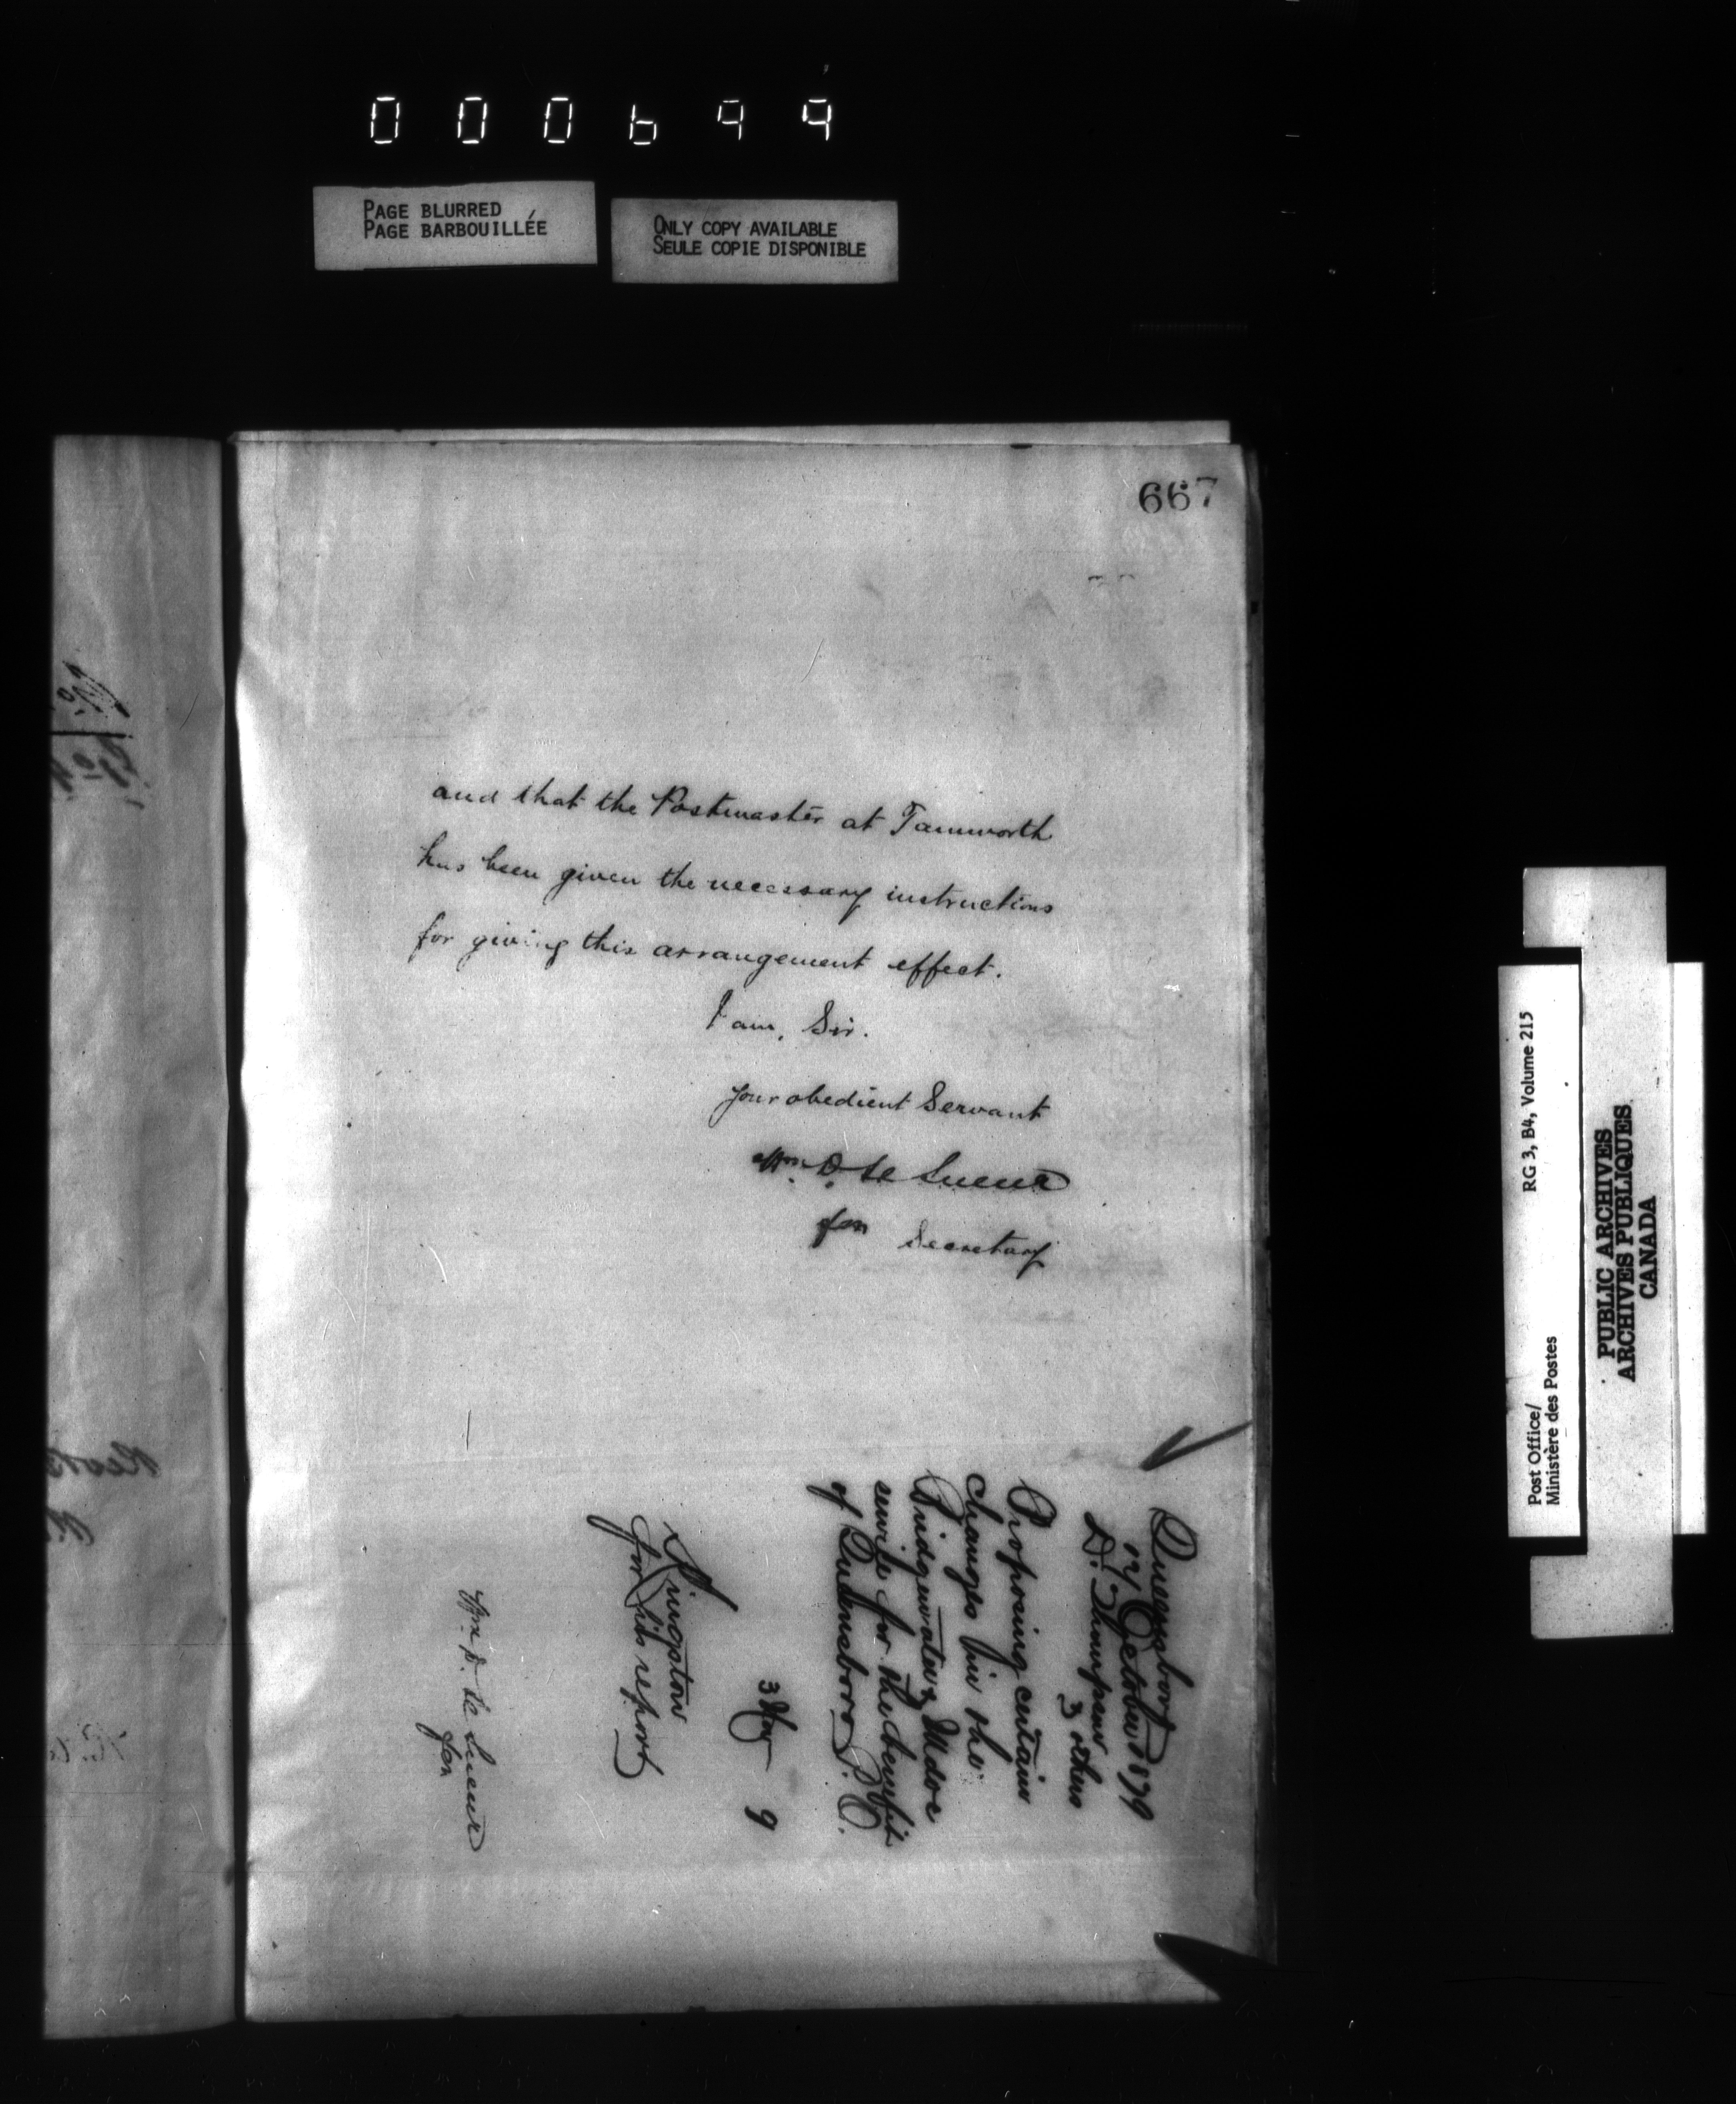 000699
PAGE BLURRED
PAGE BARBOUILLÉE
ONLY COPY AVAILABLE
SEULE COPIE DISPONIBLE
667
and that the Postmaster at Tamworth
has been given the necessary instructions
for giving this arrangement effect.
I am, Sir.
Your obedient Servant
Wm. D. Le Sueur
for Secretary
Queensboro
12 October 1879
D. Thompson
3 others
Proposing certain
changes in the
Bridgewater & Madoc
service for the benefit
of Queensboro P.O.
3 Nov 9
Kingston
for his report
Wm D. Le Sueur
for
Post Office/
Ministère des Postes
RG 3, B4, Volume 215
PUBLIC ARCHIVES
ARCHIVES PUBLIQUES
CANADA